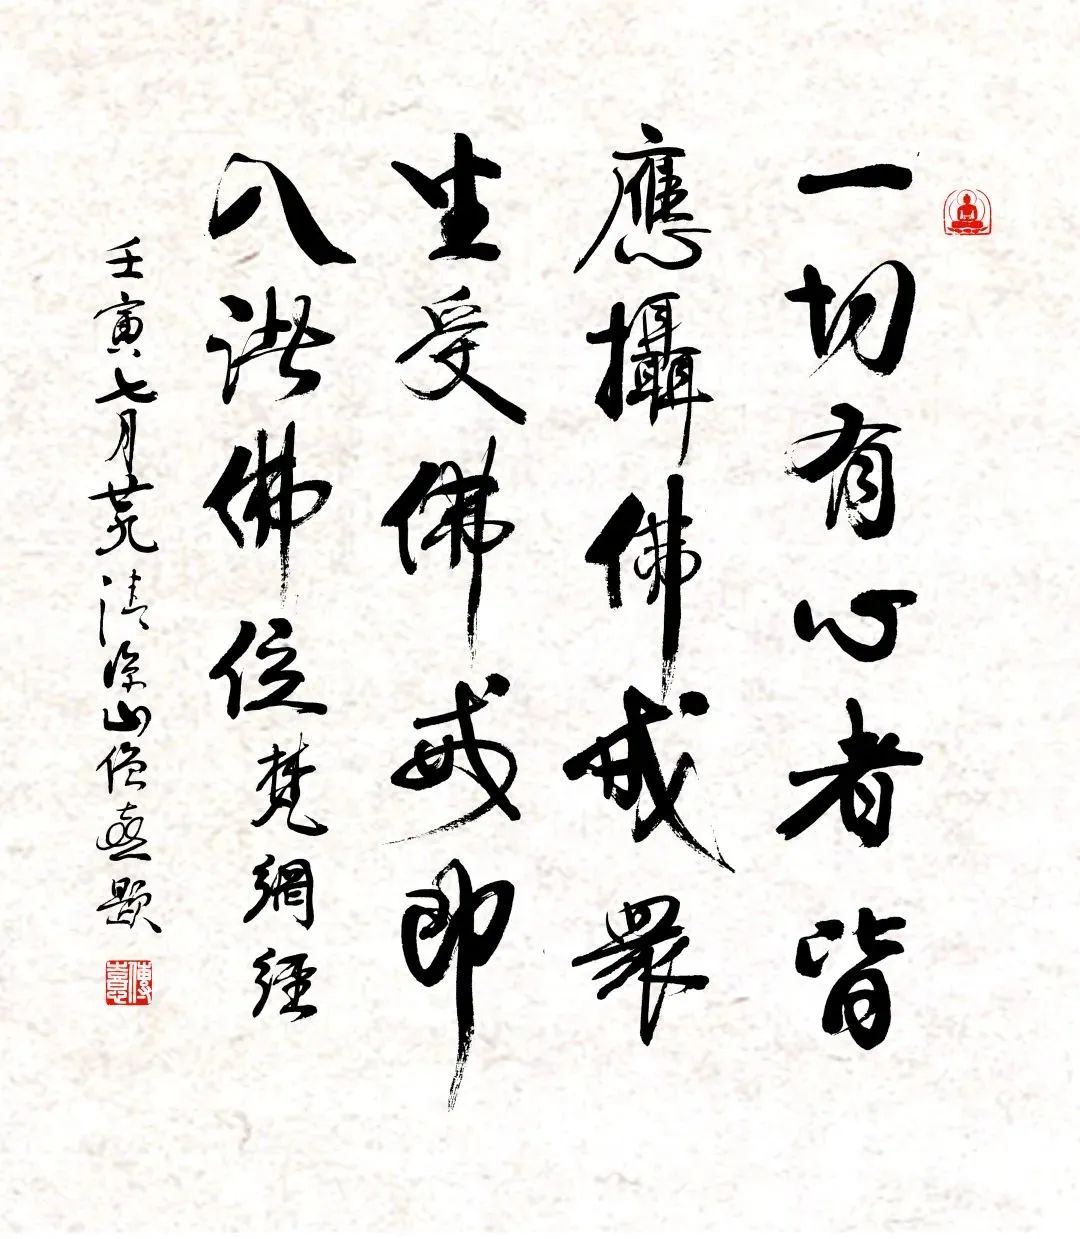 一切有心者皆
應攝佛戒眾
生受佛戒即
入諸佛位梵網經
壬寅七月清涼山憙題
傳憙